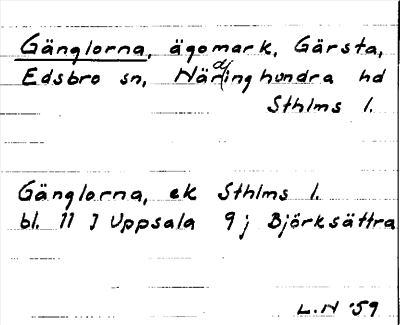 Gänglorna, ägomark, Gärsta,
Edsbro sn, Närdinghundra hd
Sthlms l.
Gänglorna, ek Sthlms l.
bl. 11 J Uppsala 9 j Björksättra
L.N '59